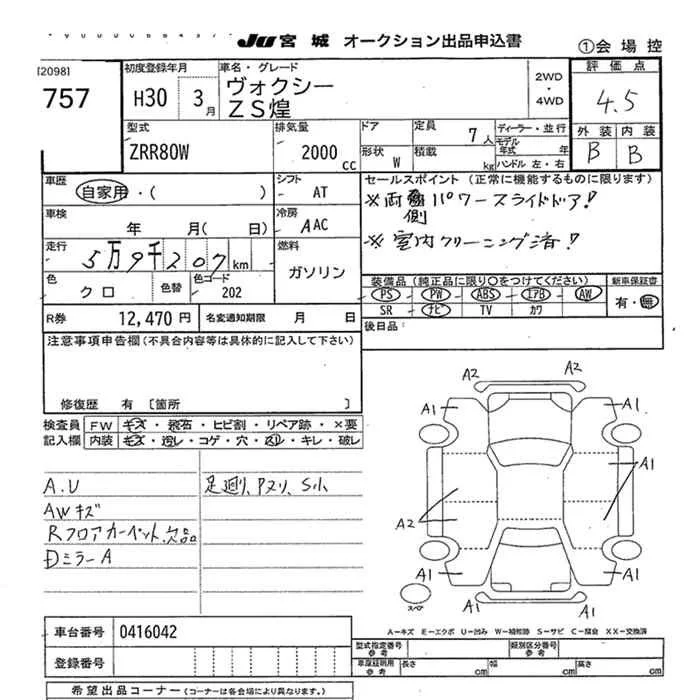 JU 宮城 オークション出品申込書 ①会場控
[2098]
757
初度登録年月
H30 3月
車名・グレード
ヴォクシー
ZS煌
2WD
・
4WD
評価点
4.5
外装 内装
B B
型式
ZRR80W
排気量
2000 cc
ドア
形状 W
定員 7人
積載 kg
ディーラー・並行
モデル年式 年
ハンドル 左・右
車歴
自家用・( )
シフト
AT
車検
年 月( 日)
冷房
AAC
走行
5万9千207km
燃料
ガソリン
色
クロ
色替
色コード
202
セールスポイント (正常に機能するものに限ります)
※両側パワースライドドア!
※室内クリーニング済!
装備品(純正品に限り〇をつけてください)
新車保証書
PS PW ABS エアB AW
SR ナビ TV カワ
有・無
R券 12,470円
名変通知期限 月 日
後日品:
注意事項申告欄(不具合内容等は具体的に記入して下さい)
修復歴 有 〔箇所 〕
検査員記入欄
FW キズ・飛石・ヒビ割・リペア跡・×要
内装 キズ・汚レ・コゲ・穴・スレ・キレ・破レ
A.U
AWキズ
Rフロアカーペット欠品
DミラーA
足廻り、Pヌリ、S小
A2
A1 A1
A1
A2
A1 A1
A1
スペア
A-キズ E-エクボ U-凹み W-補修跡 S-サビ C-腐食 XX-交換済
車台番号 0416042
登録番号
型式指定番号 参考
類別区分番号 参考
車庫証明用 参考
長さ cm 幅 cm 高さ cm
希望出品コーナー(コーナーは各会場により異なります。)